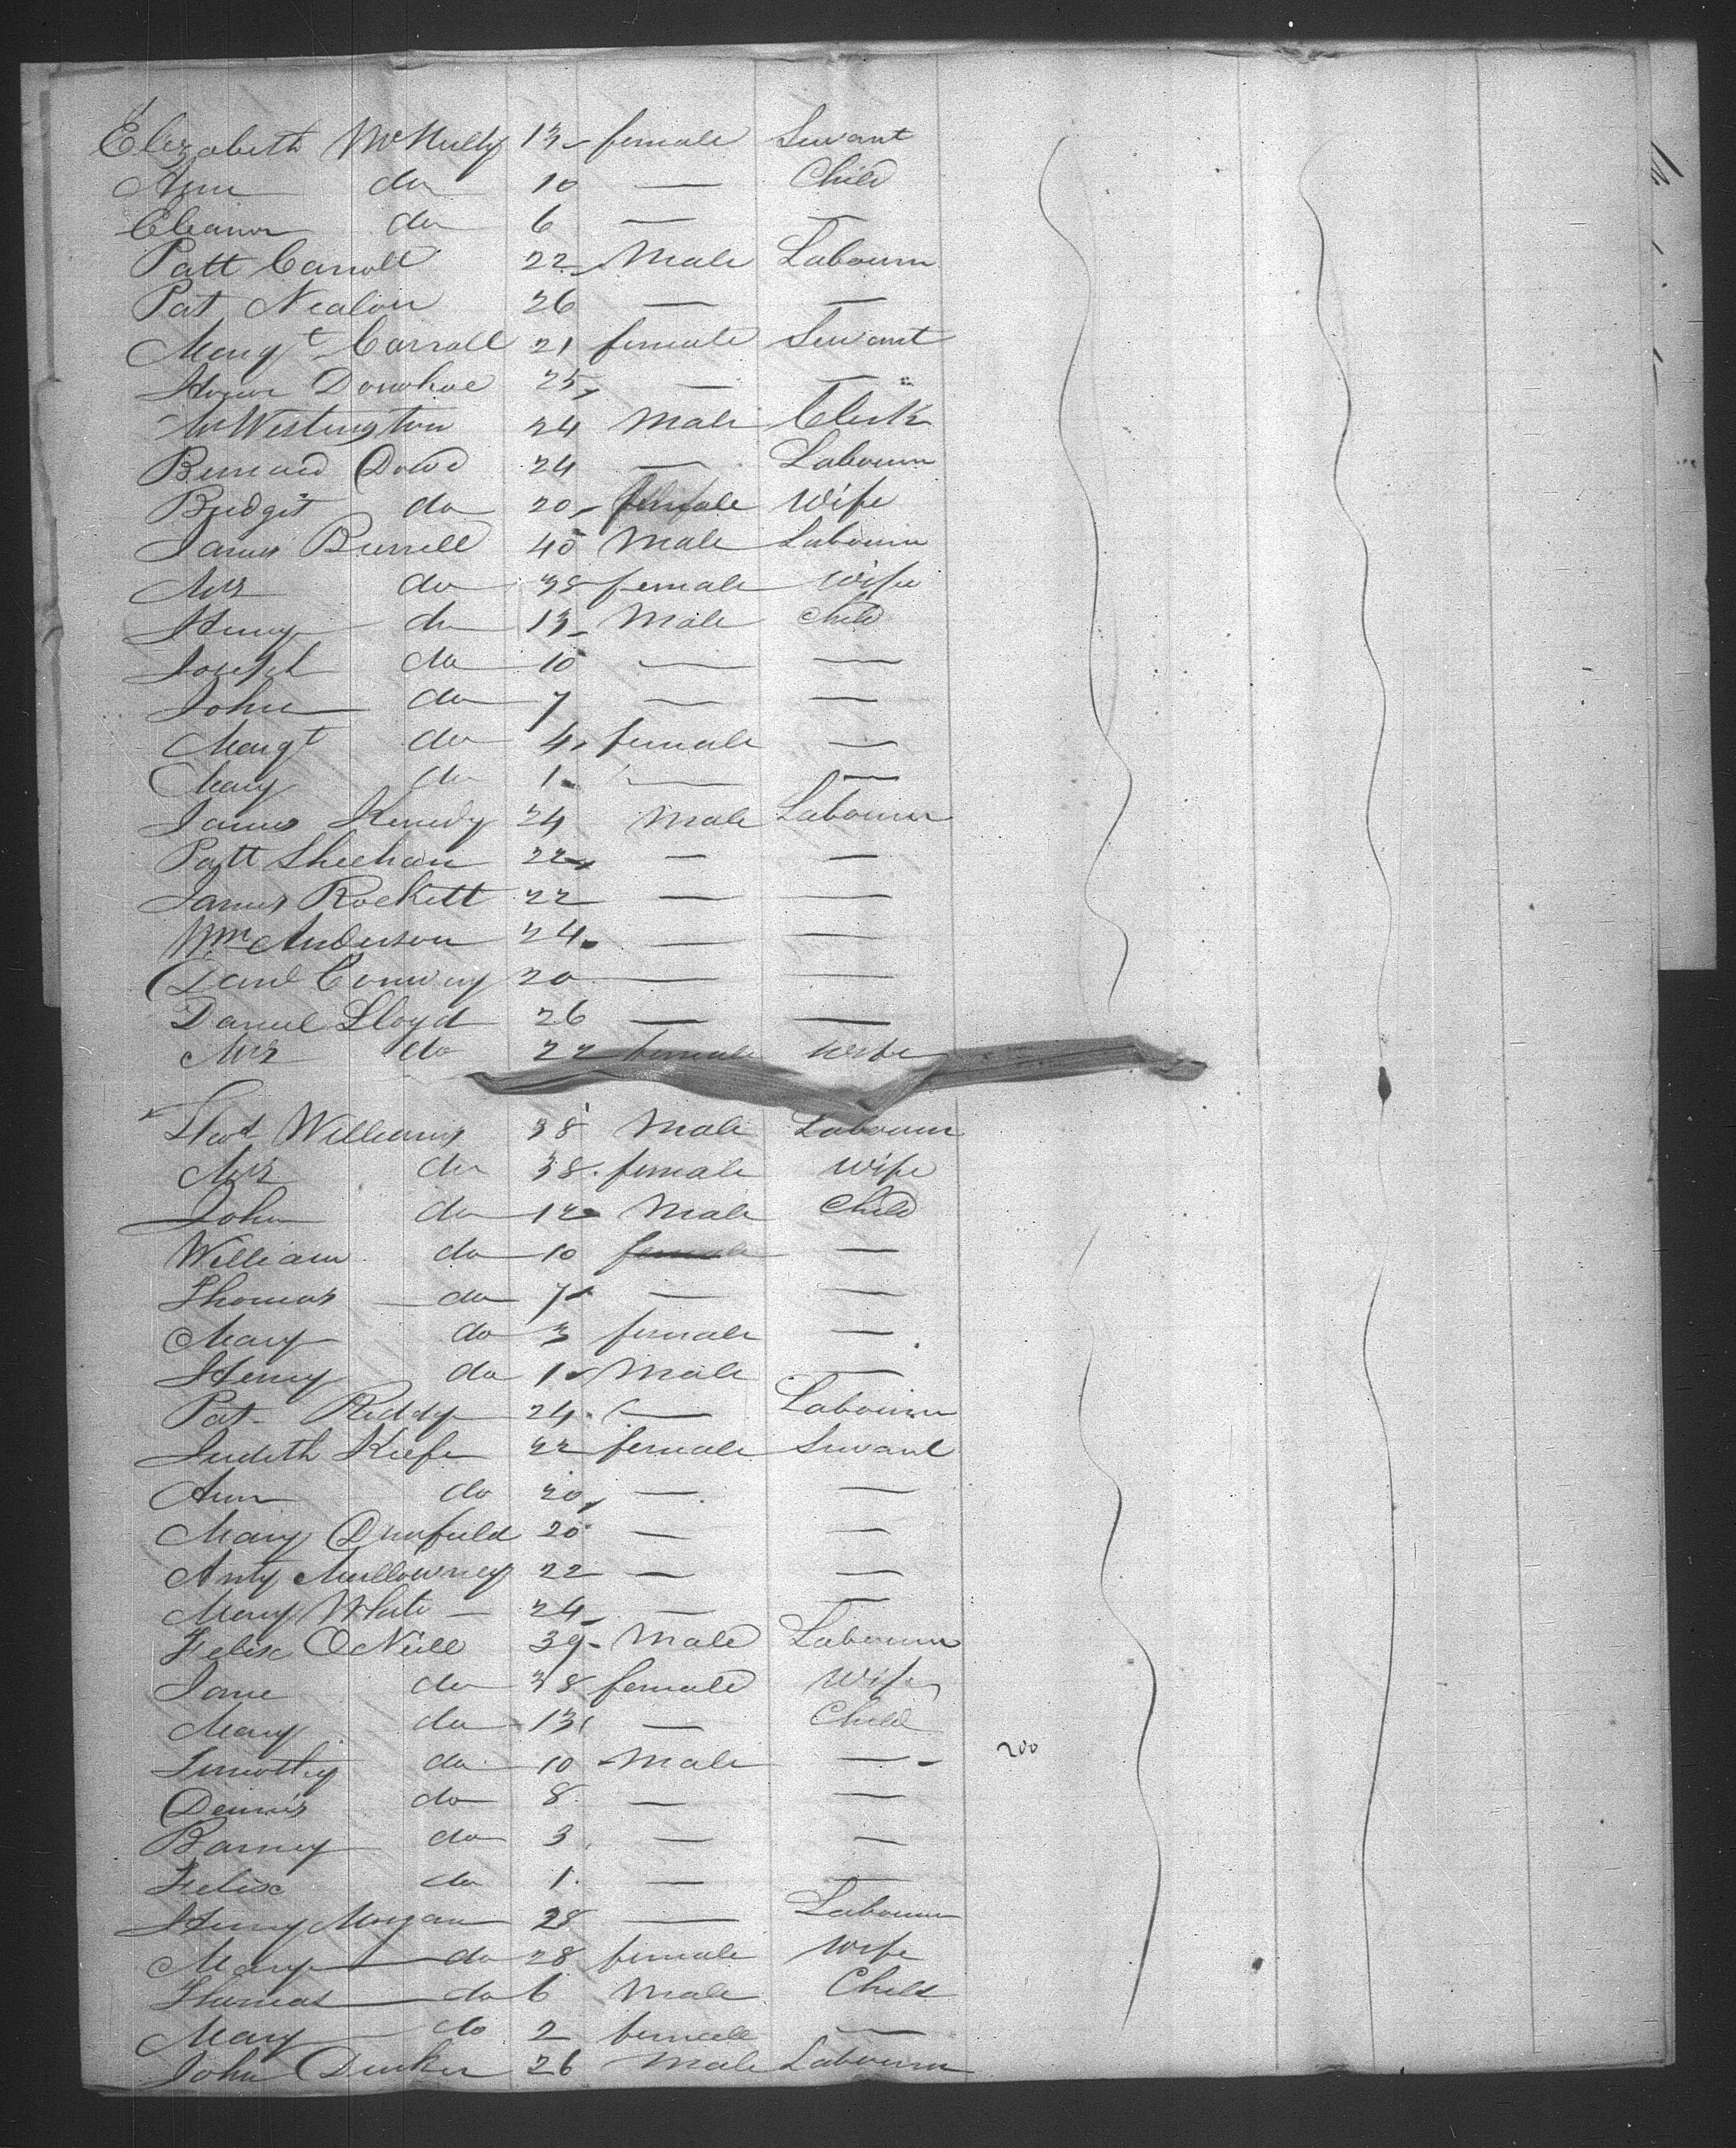 Elizabeth McNulty 13 female Servant
Ann do 10 — Child
Eleanor do 6 — —
Patt Carroll 22 Male Labourer
Pat Nealon 26 — —
Margt Carroll 21 female Servant
Donohoe 25 — —
Westington 24 Male Clerk
Bernard Dowd 24 — Labourer
Bridget do 20 female Wife
James Burrell 40 Male Labourer
Mrs do 38 female Wife
Henry do 13 Male Child
Joseph do 10 — —
John do 7 — —
Margt do 4 female —
Mary do 1 — —
James Kenedy 24 Male Labourer
Patt Sheehan 22 — —
James Rockett 22 — —
Wm Anderson 24 — —
Danl Conway 20 — —
Daniel Lloyd 26 — —
Mrs do 22 female Wife
Williams 38 Male Labourer
Mrs do 38 female Wife
John do 12 Male Child
William do 10 female —
Thomas do 7 — —
Mary do 3 female —
Henry do 1 Male —
Pat Riddy 24 — Labourer
Judith Keefe 22 female Servant
Ann do 20 — —
Mary 20 — —
Anty Mullowney 22 — —
Mary White — 24 — —
Felix O Neill 39 Male Labourer
Jane do 38 female Wife
Mary do 13 — Child
Timothy do 10 Male — 200
Dennis do 8 — —
Barney do 3 — —
Felix do 1 — —
Henry Morgan 28 — Labourer
Mary do 28 female Wife
Thomas do 6 Male Child
Mary do 2 female —
John 26 Male Labourer